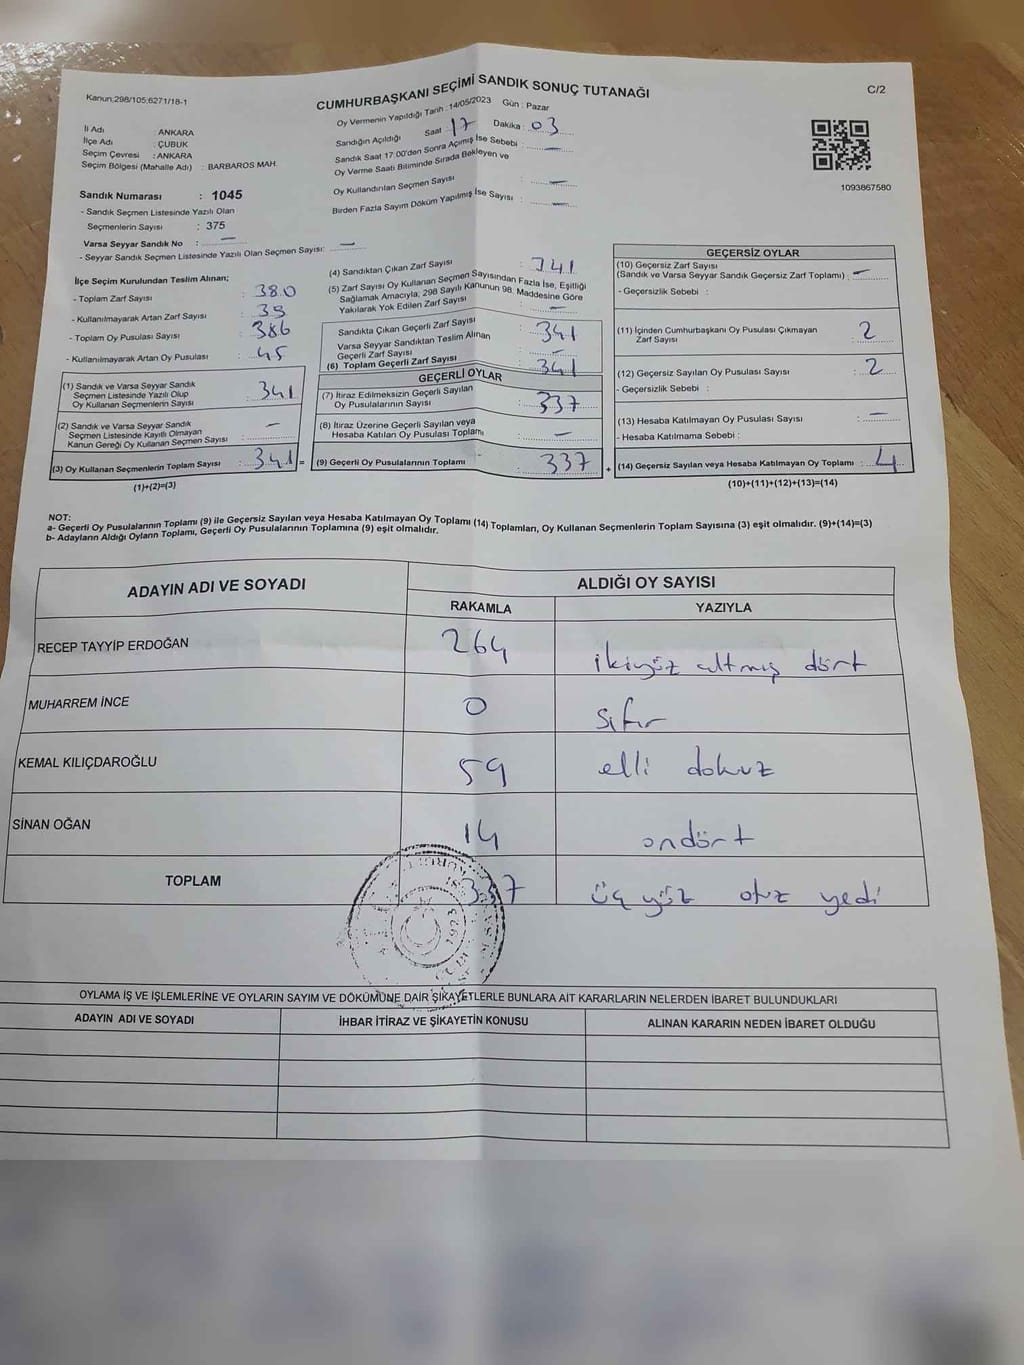 Kanun;298/105;6271/18-1
CUMHURBAŞKANI SEÇİMİ SANDIK SONUÇ TUTANAĞI
C/2
Oy Vermenin Yapıldığı Tarih : 14/05/2023 Gün : Pazar
Sandığın Açıldığı Saat 17 Dakika : 03
Sandık Saat 17.00'den Sonra Açımış İse Sebebi : —
Oy Verme Saati Bitiminde Sırada Bekleyen ve
Oy Kullandırılan Seçmen Sayısı : —
Birden Fazla Sayım Döküm Yapılmış İse Sayısı : —
1093867580
İl Adı ANKARA
İlçe Adı : ÇUBUK
Seçim Çevresi : ANKARA
Seçim Bölgesi (Mahalle Adı) : BARBAROS MAH.
Sandık Numarası : 1045
- Sandık Seçmen Listesinde Yazılı Olan
Seçmenlerin Sayısı : 375
Varsa Seyyar Sandık No : —
- Seyyar Sandık Seçmen Listesinde Yazılı Olan Seçmen Sayısı: —
İlçe Seçim Kurulundan Teslim Alınan;
- Toplam Zarf Sayısı : 380
- Kullanılmayarak Artan Zarf Sayısı : 39
- Toplam Oy Pusulası Sayısı : 386
- Kullanılmayarak Artan Oy Pusulası : 45
(1) Sandık ve Varsa Seyyar Sandık
Seçmen Listesinde Yazılı Olup
Oy Kullanan Seçmenlerin Sayısı : 341
(2) Sandık ve Varsa Seyyar Sandık
Seçmen Listesinde Kayıtlı Olmayan
Kanun Gereği Oy Kullanan Seçmen Sayısı : —
(3) Oy Kullanan Seçmenlerin Toplam Sayısı : 341 =
(1)+(2)=(3)
(4) Sandıktan Çıkan Zarf Sayısı : 341
(5) Zarf Sayısı Oy Kullanan Seçmen Sayısından Fazla İse, Eşitliği
Sağlamak Amacıyla, 298 Sayılı Kanunun 98. Maddesine Göre
Yakılarak Yok Edilen Zarf Sayısı : —
Sandıkta Çıkan Geçerli Zarf Sayısı : 341
Varsa Seyyar Sandıktan Teslim Alınan
Geçerli Zarf Sayısı : —
(6) Toplam Geçerli Zarf Sayısı : 341
GEÇERLİ OYLAR
(7) İtiraz Edilmeksizin Geçerli Sayılan
Oy Pusulalarının Sayısı : 337
(8) İtiraz Üzerine Geçerli Sayılan veya
Hesaba Katılan Oy Pusulası Toplamı : —
(9) Geçerli Oy Pusulalarının Toplamı : 337 +
GEÇERSİZ OYLAR
(10) Geçersiz Zarf Sayısı
(Sandık ve Varsa Seyyar Sandık Geçersiz Zarf Toplamı) : —
- Geçersizlik Sebebi :
(11) İçinden Cumhurbaşkanı Oy Pusulası Çıkmayan
Zarf Sayısı : 2
(12) Geçersiz Sayılan Oy Pusulası Sayısı : 2
- Geçersizlik Sebebi :
(13) Hesaba Katılmayan Oy Pusulası Sayısı : —
- Hesaba Katılmama Sebebi :
(14) Geçersiz Sayılan veya Hesaba Katılmayan Oy Toplamı : 4
(10)+(11)+(12)+(13)=(14)
NOT:
a- Geçerli Oy Pusulalarının Toplamı (9) ile Geçersiz Sayılan veya Hesaba Katılmayan Oy Toplamı (14) Toplamları, Oy Kullanan Seçmenlerin Toplam Sayısına (3) eşit olmalıdır. (9)+(14)=(3)
b- Adayların Aldığı Oyların Toplamı, Geçerli Oy Pusulalarının Toplamına (9) eşit olmalıdır.
ADAYIN ADI VE SOYADI ALDIĞI OY SAYISI
RAKAMLA YAZIYLA
RECEP TAYYİP ERDOĞAN 264 ikiyüz altmış dört
MUHARREM İNCE 0 sıfır
KEMAL KILIÇDAROĞLU 59 elli dokuz
SİNAN OĞAN 14 ondört
TOPLAM 337 üç yüz otuz yedi
1923
OYLAMA İŞ VE İŞLEMLERİNE VE OYLARIN SAYIM VE DÖKÜMÜNE DAİR ŞİKAYETLERLE BUNLARA AİT KARARLARIN NELERDEN İBARET BULUNDUKLARI
ADAYIN ADI VE SOYADI İHBAR İTİRAZ VE ŞİKAYETİN KONUSU ALINAN KARARIN NEDEN İBARET OLDUĞU